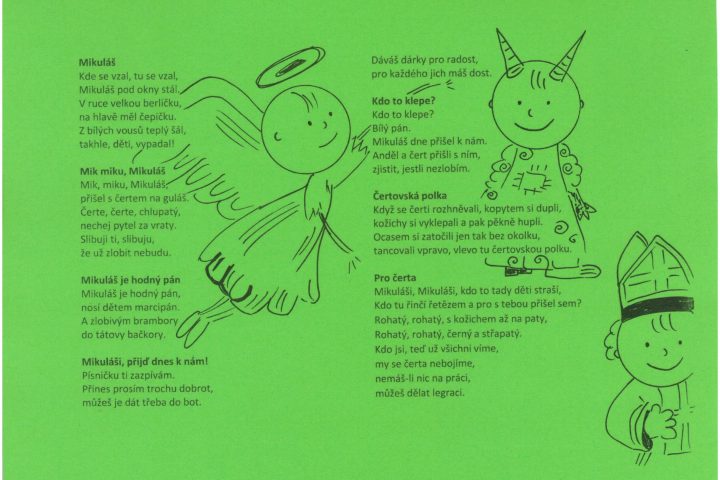 Mikuláš
Kde se vzal, tu se vzal,
Mikuláš pod okny stál.
V ruce velkou berličku,
na hlavě měl čepičku.
Z bílých vousů teplý šál,
takhle, děti, vypadal!
Mik miku, Mikuláš
Mik, miku, Mikuláš,
přišel s čertem na guláš.
Čerte, čerte, chlupatý,
nechej pytel za vraty.
Slibuji ti, slibuju,
že už zlobit nebudu.
Mikuláš je hodný pán
Mikuláš je hodný pán,
nosí dětem marcipán.
A zlobivým brambory
do tátovy bačkory.
Mikuláši, přijď dnes k nám!
Písničku ti zazpívám.
Přines prosím trochu dobrot,
můžeš je dát třeba do bot.
Dáváš dárky pro radost,
pro každého jich máš dost.
Kdo to klepe?
Kdo to klepe?
Bílý pán.
Mikuláš dne přišel k nám.
Anděl a čert přišli s ním,
zjistit, jestli nezlobím.
Čertovská polka
Když se čerti rozhněvali, kopytem si dupli,
kožichy si vyklepali a pak pěkně hupli.
Ocasem si zatočili jen tak bez okolku,
tancovali vpravo, vlevo tu čertovskou polku.
Pro čerta
Mikuláši, Mikuláši, kdo to tady děti straší,
Kdo tu řinčí řetězem a pro s tebou přišel sem?
Rohatý, rohatý, s kožichem až na paty,
Rohatý, rohatý, černý a střapatý.
Kdo jsi, teď už všichni víme,
my se čerta nebojíme,
nemáš-li nic na práci,
můžeš dělat legraci.